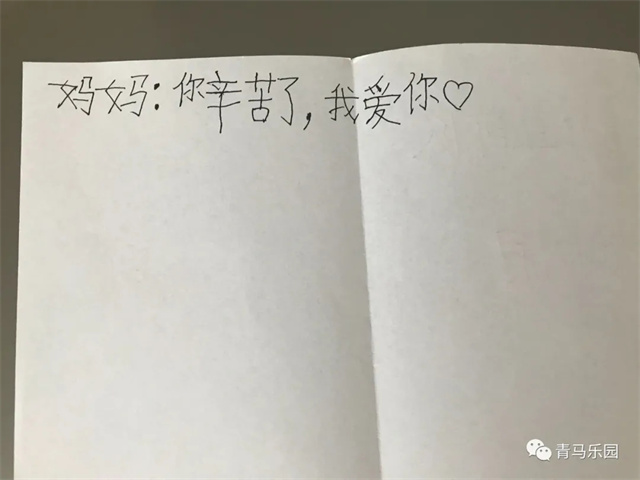 妈妈：你辛苦了，我爱你♡
青马乐园